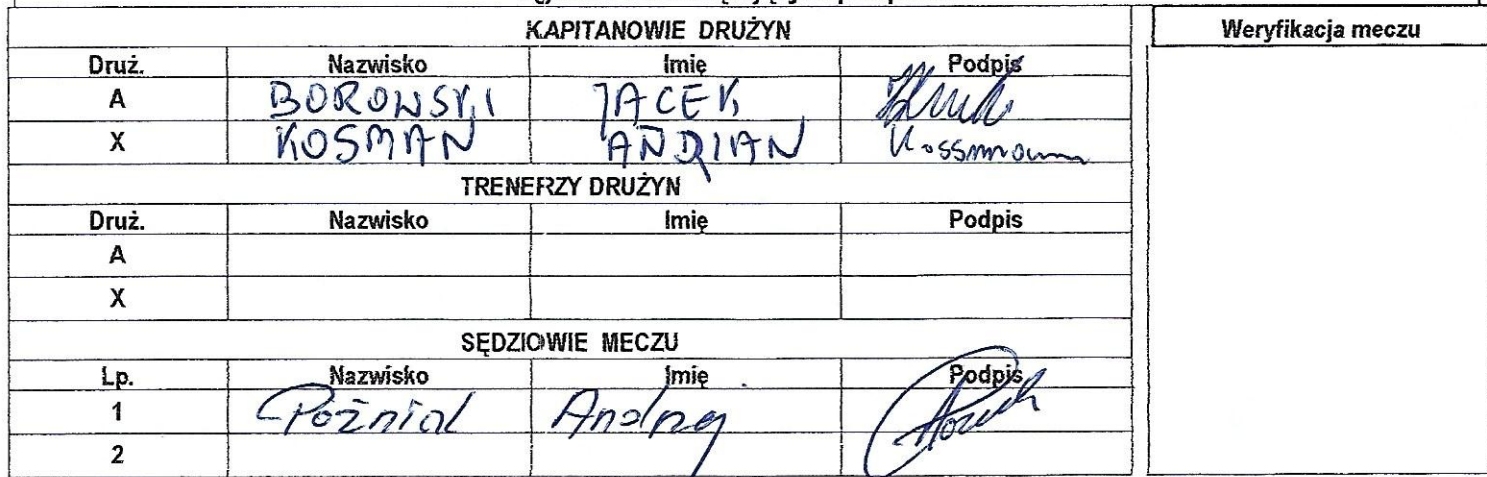 KAPITANOWIE DRUŻYN Weryfikacja meczu
Druż. Nazwisko Imię Podpis
A BOROWSKI JACEK
X KOSMAN ADRIAN Kossmann
TRENERZY DRUŻYN
Druż. Nazwisko Imię Podpis
A
X
SĘDZIOWIE MECZU
Lp. Nazwisko Imię Podpis
1 Poźniak Andrzej
2